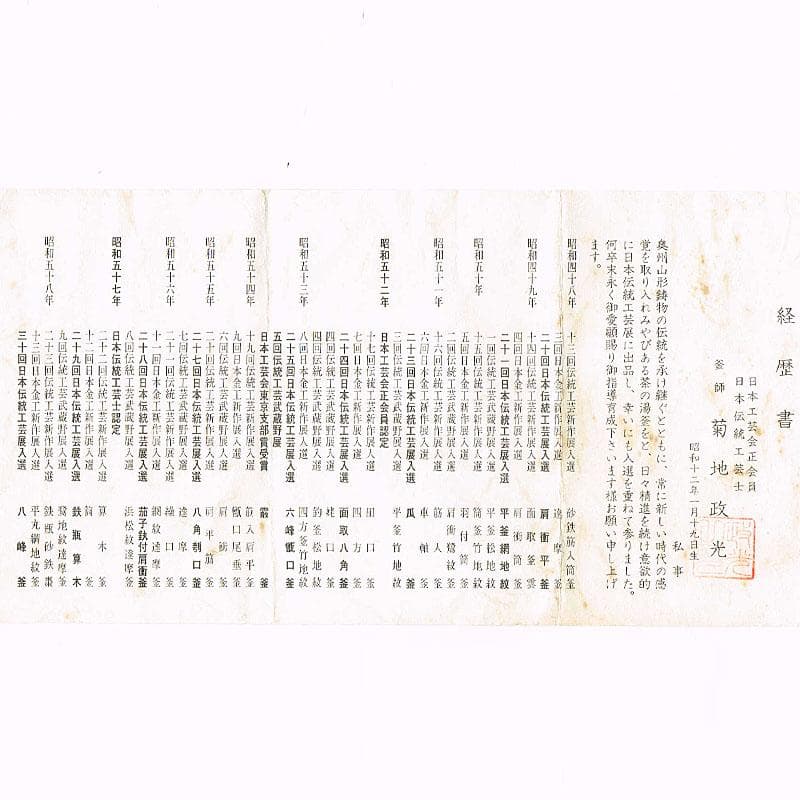 経歴書
日本工芸会正会員
日本伝統工芸士
釜師 菊地政光
昭和十二年一月十九日生
私事
奥州山形鋳物の伝統を承け継ぐとともに、常に新しい時代の感
覚を取り入れみやびある茶の湯釜をと、日々精進を続け意欲的
に日本伝統工芸展に出品し、幸いにも入選を重ねて参りました。
何卒末永く御愛顧賜り御指導育成下さいます様お願い申し上げ
ます。
昭和四十八年 十三回伝統工芸新作展入選 砂鉄筋入筒釜
三回日本金工新作展入選 達摩釜
二十回日本伝統工芸展入選 肩衝平釜
昭和四十九年 十四回伝統工芸新作展入選 面取釜
四回日本金工新作展入選 肩衝筒釜
二十一回日本伝統工芸展入選 平釜網地紋
昭和五十年 十五回伝統工芸新作展入選 平釜松地紋
五回日本金工新作展入選 筒釜竹地紋
一回伝統工芸武蔵野展入選 羽付筒釜
昭和五十一年 二回伝統工芸武蔵野展入選 肩衝鷺紋釜
十六回伝統工芸新作展入選 筋入釜
六回日本金工新作展入選 車軸釜
二十三回日本伝統工芸展入選 瓜釜
三回伝統工芸武蔵野展入選 平釜竹地紋
昭和五十二年 日本工芸会正会員認定
十七回伝統工芸新作展入選 田口釜
七回日本金工新作展入選 四方釜
二十四回日本伝統工芸展入選 面取八角釜
四回伝統工芸武蔵野展入選 姥口釜
昭和五十三年 八回日本金工新作展入選 釜松地紋
二十五回日本伝統工芸展入選 六峰甑口釜
五回伝統工芸武蔵野展 四方釜竹地紋
日本工芸会東京支部賞受賞 霰釜
昭和五十四年 十九回伝統工芸新作展入選 筋入肩平釜
九回日本金工新作展入選 甑口尾垂釜
六回伝統工芸武蔵野展入選 肩衝釜
昭和五十五年 二十回伝統工芸新作展入選 肩平筋釜
二十七回日本伝統工芸展入選 八角朝口釜
七回伝統工芸武蔵野展入選 達摩釜
昭和五十六年 二十一回伝統工芸新作展入選 繰口釜
十一回日本金工新作展入選 網紋達摩釜
二十八回日本伝統工芸展入選 茄子鈇付肩衝釜
八回伝統工芸武蔵野展入選 浜松紋達摩釜
昭和五十七年 日本伝統工芸士認定
二十二回伝統工芸新作展入選 算木釜
十二回日本金工新作展入選 筒釜
二十九回日本伝統工芸展入選 鉄瓶算木
九回伝統工芸武蔵野展入選 地紋達摩釜
昭和五十八年 二十三回伝統工芸新作展入選 鉄瓶砂鉄棗
十三回日本金工新作展入選 平丸網地紋釜
三十回日本伝統工芸展入選 八峰釜